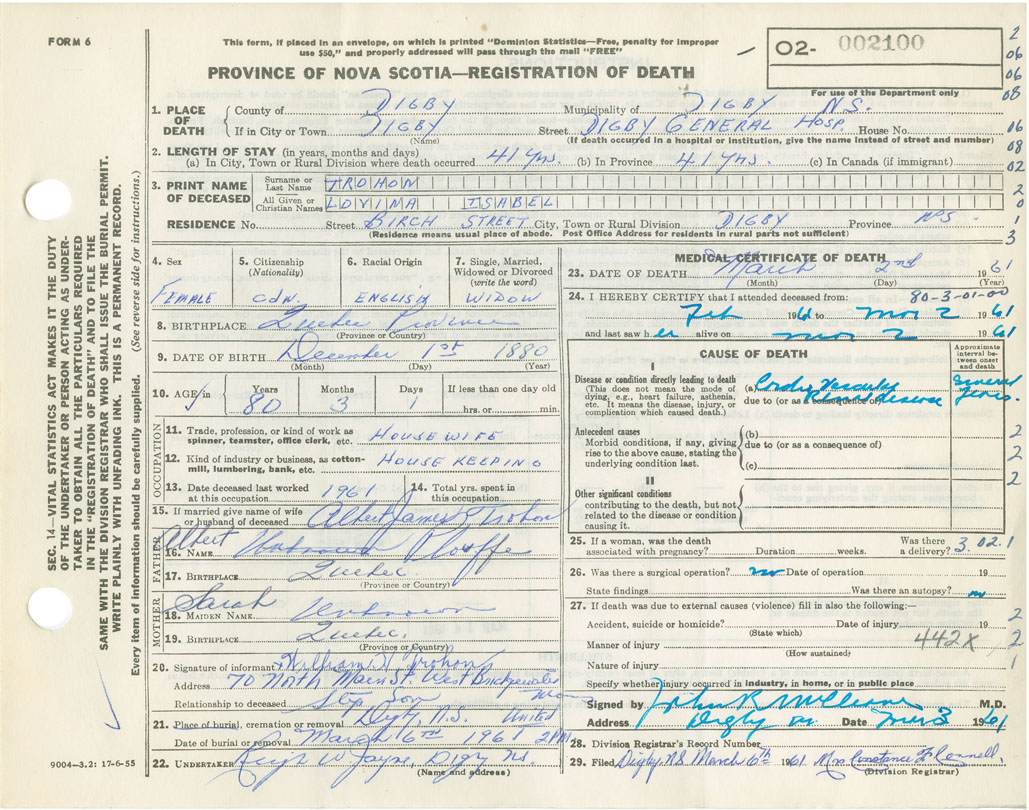 FORM 6
This form, if placed in an envelope, on which is printed "Dominion Statistics—Free, penalty for improper
use $50," and properly addressed will pass through the mail "FREE"
O2- 002100
For use of the Department only
PROVINCE OF NOVA SCOTIA—REGISTRATION OF DEATH
2
06
06
08
16
08
02
2
0
1
3
1. PLACE OF DEATH
County of DIGBY Municipality of DIGBY N.S.
If in City or Town DIGBY Street DIGBY GENERAL HOSP. House No.
(Name) (If death occurred in a hospital or institution, give the name instead of street and number)
2. LENGTH OF STAY (in years, months and days)
(a) In City, Town or Rural Division where death occurred 41 yrs. (b) In Province 41 yrs. (c) In Canada (if immigrant)
3. PRINT NAME OF DECEASED
Surname or Last Name TROHON
All Given or Christian Names LOVINA ISABEL
RESIDENCE No. Street BIRCH STREET City, Town or Rural Division DIGBY Province N.S.
(Residence means usual place of abode. Post Office Address for residents in rural parts not sufficient)
4. Sex
FEMALE
5. Citizenship (Nationality)
CDN.
6. Racial Origin
ENGLISH
7. Single, Married, Widowed or Divorced (write the word)
WIDOW
8. BIRTHPLACE Quebec Province
(Province or Country)
9. DATE OF BIRTH December 1st 1880
(Month) (Day) (Year)
10. AGE in
Years 80
Months 3
Days 1
If less than one day old
hrs. or min.
OCCUPATION
11. Trade, profession, or kind of work as spinner, teamster, office clerk, etc. HOUSEWIFE
12. Kind of industry or business, as cotton-mill, lumbering, bank, etc. HOUSE KEEPING
13. Date deceased last worked at this occupation 1961
14. Total yrs. spent in this occupation
15. If married give name of wife or husband of deceased Albert James Trohon
FATHER
16. NAME Albert Unknown Plouffe
17. BIRTHPLACE Quebec
(Province or Country)
MOTHER
18. MAIDEN NAME Sarah Unknown
19. BIRTHPLACE Quebec.
(Province or Country)
20. Signature of informant William H Trohon
Address 70 North Main St. West Bridgewater Mass
Relationship to deceased Step Son United
21. Place of burial, cremation or removal Digby, N.S.
Date of burial or removal March 6th 1961 2 PM
22. UNDERTAKER W Jayne, Digby NS.
(Name and address)
9004—3.2: 17-6-55
MEDICAL CERTIFICATE OF DEATH
23. DATE OF DEATH March 2nd 1961
(Month) (Day) (Year)
24. I HEREBY CERTIFY that I attended deceased from: 80-3-01-00
Feb 1961 to Mar 2 1961
and last saw her alive on Mar 2 1961
CAUSE OF DEATH
Approximate interval between onset and death
I
Disease or condition directly leading to death
(This does not mean the mode of dying, e.g., heart failure, asthenia, etc. It means the disease, injury, or complication which caused death.)
(a) Cardio Vascular Renal disease
due to (or as a consequence of)
Several Years
Antecedent causes
Morbid conditions, if any, giving rise to the above cause, stating the underlying condition last.
(b)
due to (or as a consequence of)
(c)
2
2
2
II
Other significant conditions
contributing to the death, but not related to the disease or condition causing it.
25. If a woman, was the death associated with pregnancy? Duration weeks. Was there a delivery? 3.02.1
26. Was there a surgical operation? no Date of operation 19
State findings Was there an autopsy? no
27. If death was due to external causes (violence) fill in also the following:—
Accident, suicide or homicide? Date of injury 19 2
(State which)
Manner of injury 442X 2
(How sustained)
Nature of injury 1
Specify whether injury occurred in industry, in home, or in public place
Signed by John R M.D.
Address Digby NS. Date Mar 3 1961
28. Division Registrar's Record Number
29. Filed Digby, NS March 6th 1961 Mrs Constance F Connell.
(Division Registrar)
SEC. 14—VITAL STATISTICS ACT MAKES IT THE DUTY
OF THE UNDERTAKER OR PERSON ACTING AS UNDER-
TAKER TO OBTAIN ALL THE PARTICULARS REQUIRED
IN THE "REGISTRATION OF DEATH" AND TO FILE THE
SAME WITH THE DIVISION REGISTRAR WHO SHALL ISSUE THE BURIAL PERMIT.
WRITE PLAINLY WITH UNFADING INK. THIS IS A PERMANENT RECORD.
Every item of information should be carefully supplied. (See reverse side for instructions.)